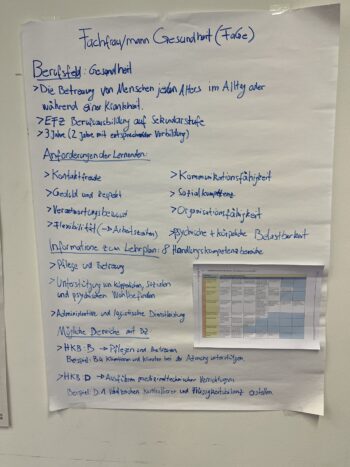 Fachfrau/mann Gesundheit (FaGe)
Berufsfeld: Gesundheit
> Die Betreuung von Menschen jeden Alters im Alltag oder
während einer Krankheit.
> EFZ Berufsausbildung auf Sekundarstufe
> 3 Jahre (2 Jahre mit entsprechender Vorbildung)
Anforderungen der Lernenden:
> Kontaktfreude
> Geduld und Respekt
> Verantwortungsbewusst
> Flexibilität (→ Arbeitszeiten)
> Kommunikationsfähigkeit
> Sozialkompetenz
> Organisationsfähigkeit
> psychische + körperliche Belastbarkeit
Informatione zum Lehrplan: 8 Handlungskompetenzbereiche
> Pflege und Betreuung
> Unterstützung von körperlichen, sozialen
und psychischem Wohlbefinden
> Administrative und logistische Dienstleistung
Mögliche Bereiche mit
> HKB: B → Pflegen und Betreuen
Beispiel: Klientinnen und Klienten bei der Atmung unterstützen
> HKB: D → Ausführen medizinaltechnischer Verrichtungen
Beispiel: D.1 Vitalzeichen kontrollieren und Flüssigkeitsbilanz erstellen